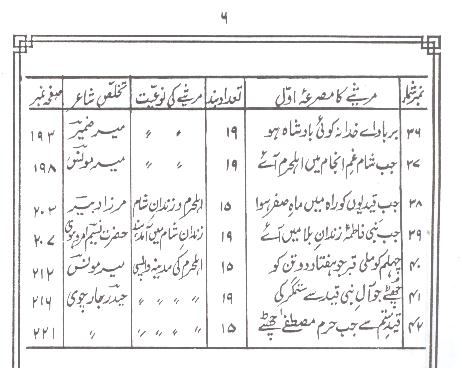 ۶
نمبر شمار مرثیے کا مصرعۂ اوّل تعداد بند مرثیے کی نوعیت تخلّص شاعر صفحہ نمبر
۳۶ برباد اے خدا نہ کوئی بادشاہ ہو ۱۹ 〃 〃 میر ضمیر ۱۹۳
۳۷ جب شام غم انجام میں اہلحرم آئے ۱۹ 〃 〃 میر مونس ۱۹۸
۳۸ جب قیدیوں کو راہ میں ماہِ صفر ہوا ۱۵ اہلحرم و زندانِ شام مرزا دبیر ۲۰۳
۳۹ جب نبی فاطمہ زندانِ بلا میں آئے ۱۹ زندان شام میں آمد حضرت نسیم امروہوی ۲۰۷
۴۰ چہلم کو ملی قبر جو ہفتاد و دو تن کو ۱۵ اہلحرم کی مدینہ واپسی میر مونس ۲۱۲
۴۱ چُھٹے جو آلِ نبی قید سے ستمگر کی ۱۹ 〃 〃 〃 〃 حیدر جارچوی ۲۱۶
۴۲ قیدِ ستم سے جب حرم مصطفےٰ چھٹے ۱۵ 〃 〃 〃 〃 〃 ۲۲۱